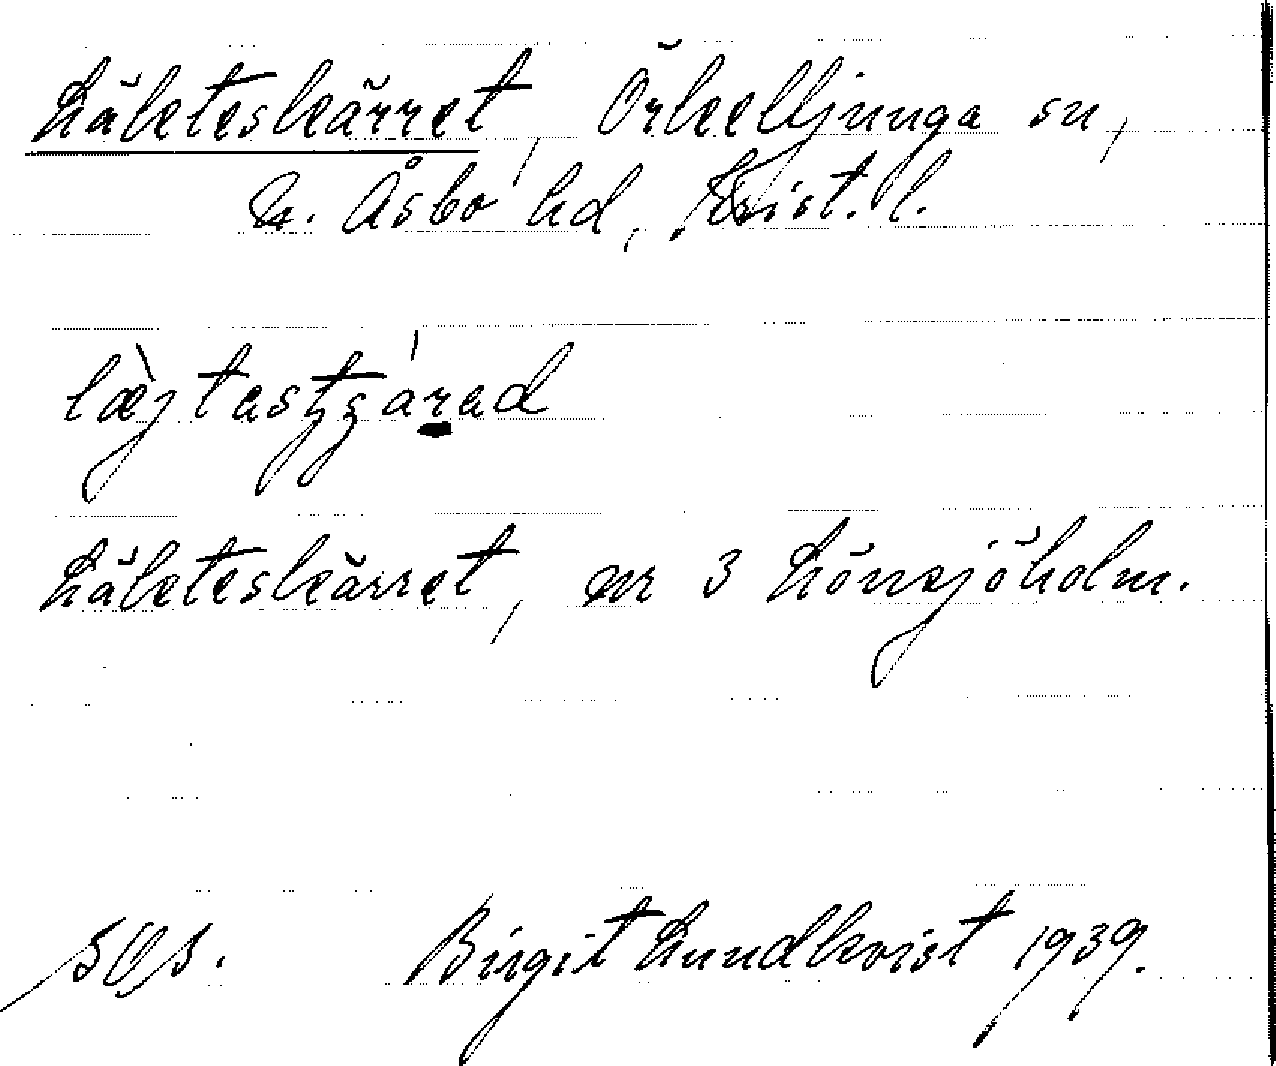 Läkteskärret, Örkelljunga sn,
N. Åsbo hd, Krist. l.
læ̀jtastʒárad
Läkteskärret, nr 3 Lönsjöholm.
SOs. Birgit Lundkvist 1939.